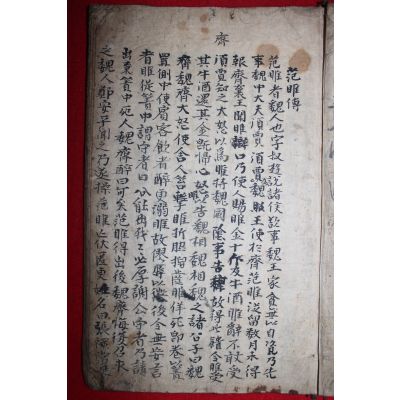 齊
范雎傳
范雎者魏人也字叔遊說諸侯欲事魏王家貧無以自資乃先
事魏中大夫須賈須賈魏昭王使於齊范雎從留數月未得
報齊襄王聞雎辯口乃使人賜雎金十斤及牛酒雎辭不敢受
須賈知之大怒以爲雎持魏國陰事告齊故得此饋令雎受
其牛酒還其金旣歸心怒雎以告魏相魏相魏之諸公子曰魏
齊魏齊大怒使舍人笞擊雎折脅摺齒雎佯死即卷以簀
置厠中使賓客飮者醉更溺雎故僇辱以懲後令無妄言
者雎從簀中謂守者曰公能出我我必厚謝公守者乃請
出棄簀中死人魏齊醉曰可矣范雎得出後魏齊悔復召求
之魏人鄭安平聞之乃遂操范雎亡伏匿更姓名曰張祿